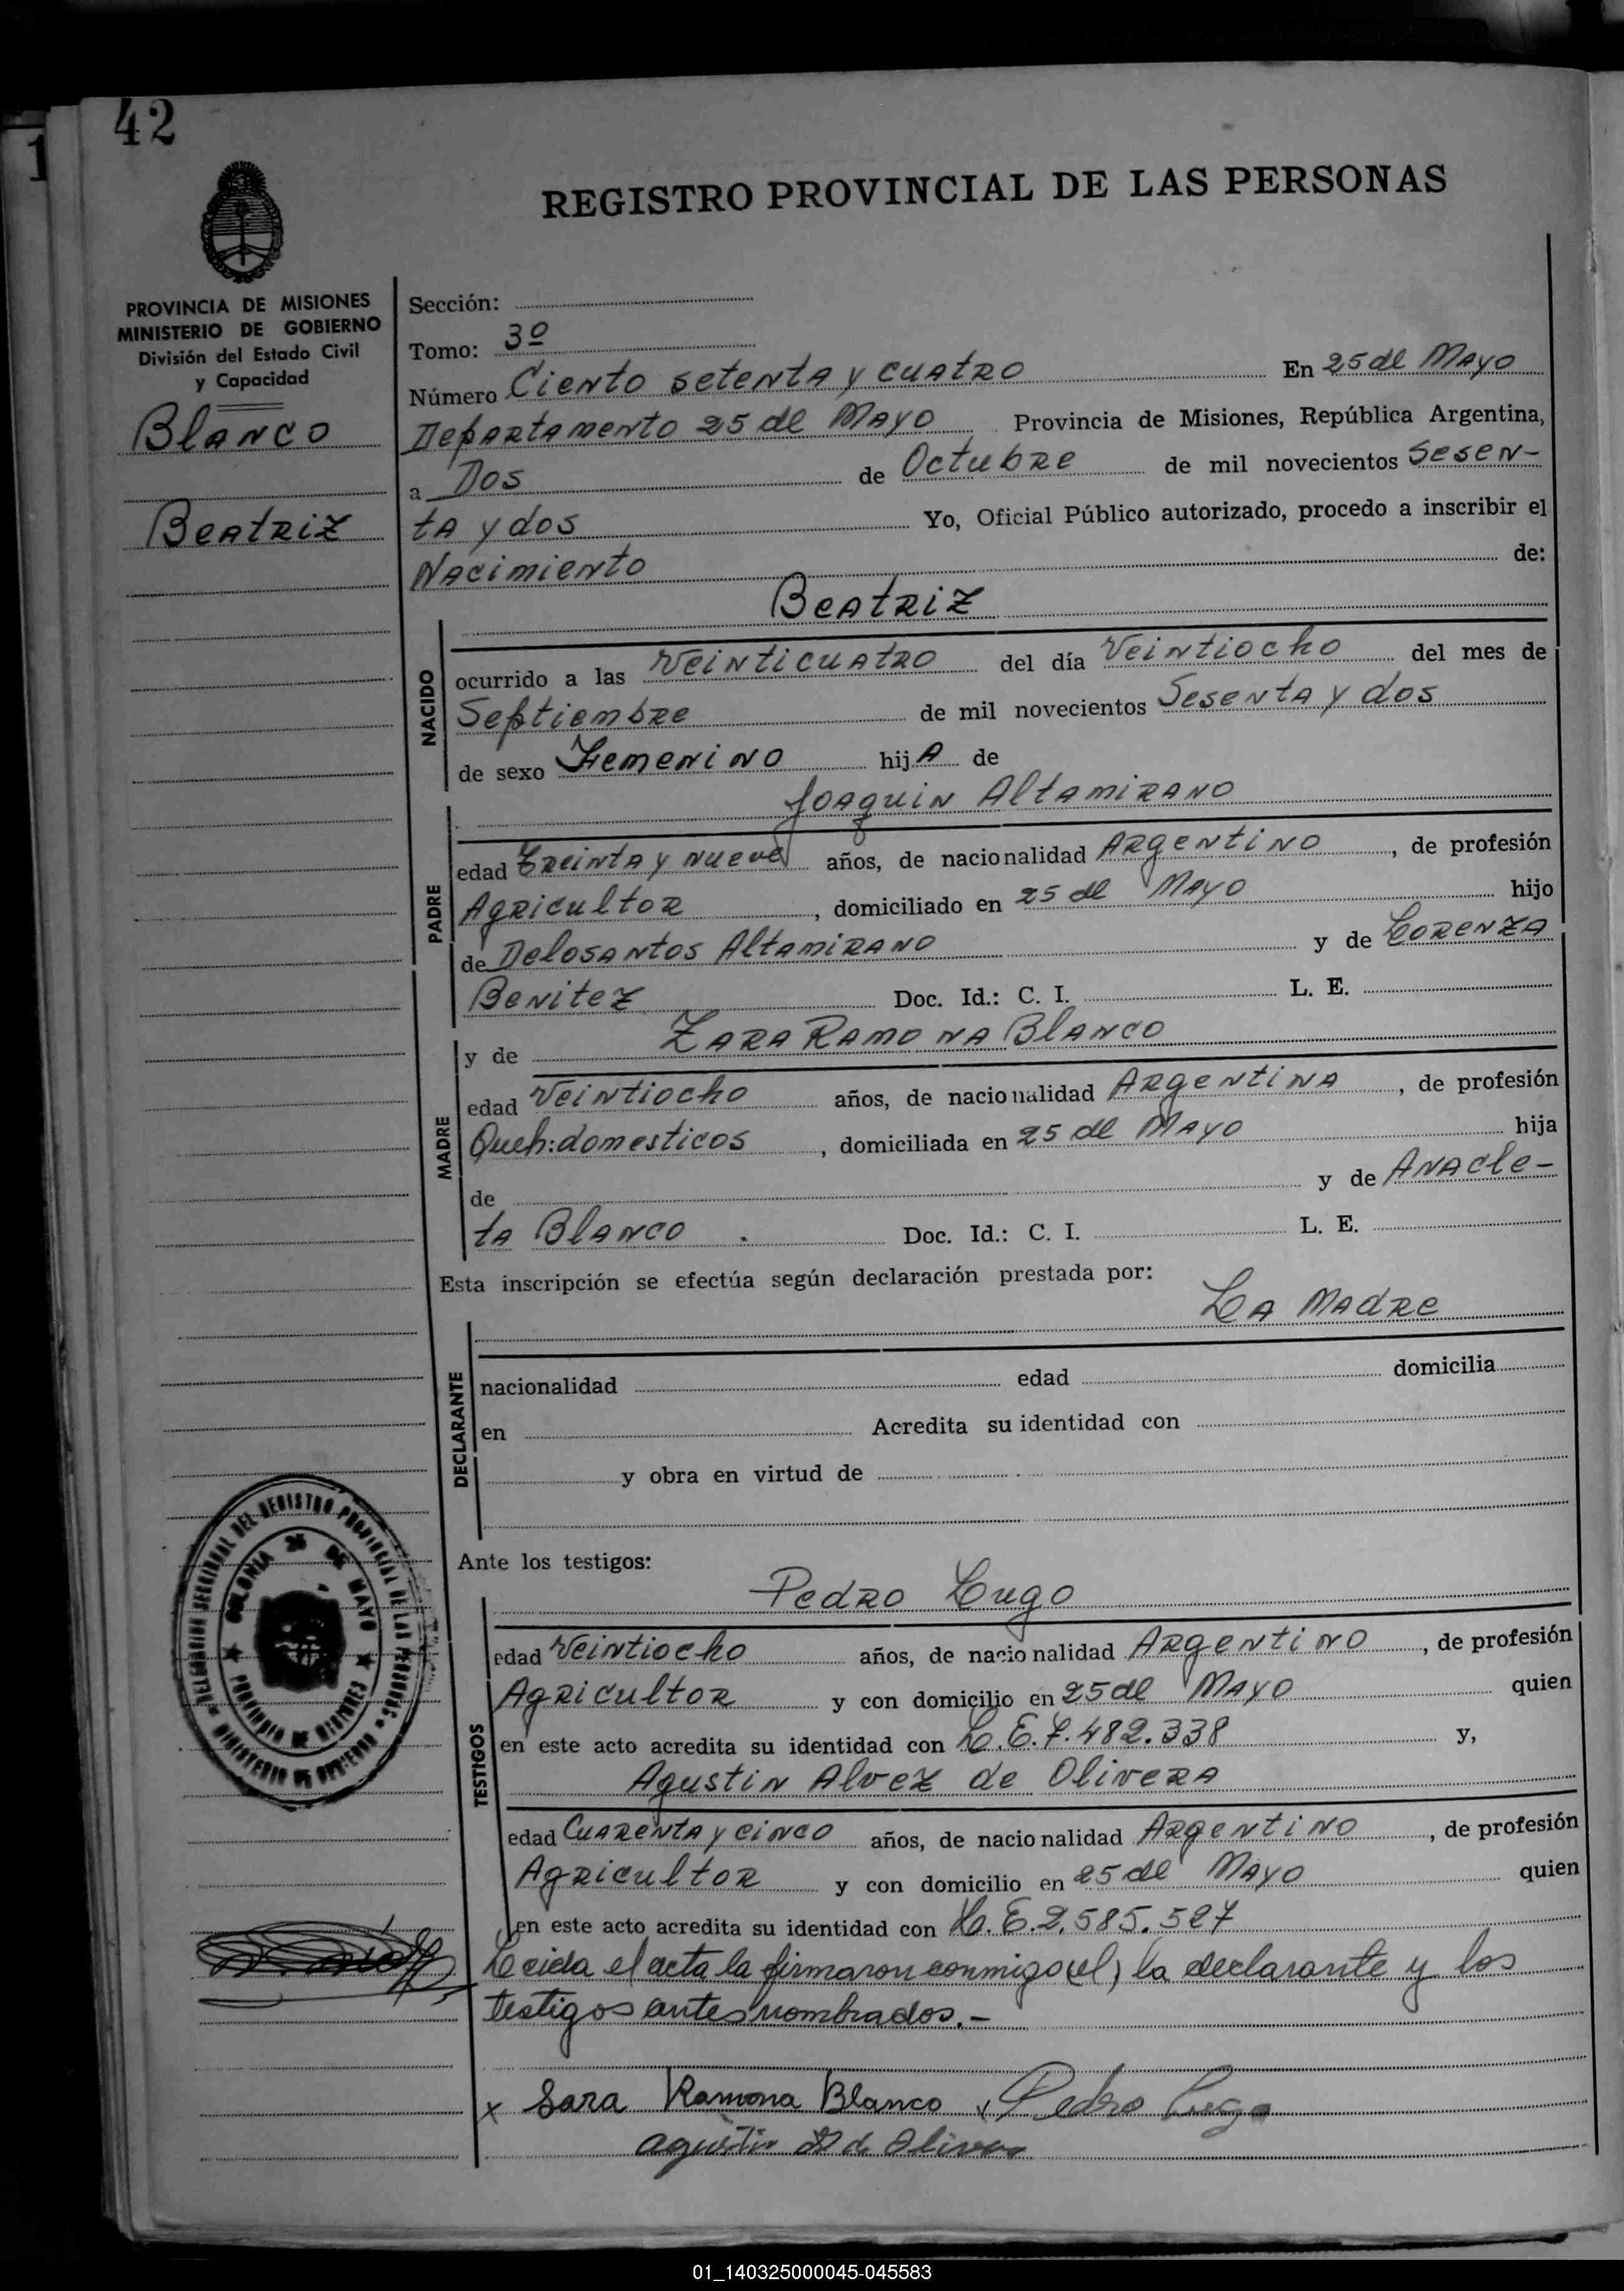 42
1
REGISTRO PROVINCIAL DE LAS PERSONAS
PROVINCIA DE MISIONES
MINISTERIO DE GOBIERNO
División del Estado Civil
y Capacidad
Blanco
Beatriz
Sección:
Tomo: 3º
Número Ciento setenta y cuatro En 25 de Mayo
Departamento 25 de Mayo Provincia de Misiones, República Argentina,
a Dos de Octubre de mil novecientos Sesen-
ta y dos Yo, Oficial Público autorizado, procedo a inscribir el
Nacimiento de:
Beatriz
NACIDO
ocurrido a las Veinticuatro del día Veintiocho del mes de
Septiembre de mil novecientos Sesenta y dos
de sexo Femenino hija de
Joaquin Altamirano
PADRE
edad Treinta y nueve años, de nacionalidad Argentino, de profesión
Agricultor, domiciliado en 25 de Mayo hijo
de Delosantos Altamirano y de Lorenza
Benitez Doc. Id.: C. I. L. E.
y de Zara Ramona Blanco
MADRE
edad Veintiocho años, de nacionalidad Argentina, de profesión
Queh: domesticos, domiciliada en 25 de Mayo hija
de y de Anacle-
ta Blanco. Doc. Id.: C. I. L. E.
Esta inscripción se efectúa según declaración prestada por:
La Madre
DECLARANTE
nacionalidad edad domicilia
en Acredita su identidad con
y obra en virtud de
Ante los testigos:
Pedro Lugo
TESTIGOS
edad Veintiocho años, de nacionalidad Argentino, de profesión
Agricultor y con domicilio en 25 de Mayo quien
en este acto acredita su identidad con L.E. 7.482.338 y,
Agustin Alvez de Olivera
edad Cuarenta y cinco años, de nacionalidad Argentino, de profesión
Agricultor y con domicilio en 25 de Mayo quien
en este acto acredita su identidad con L.E. 2.585.527
Leida el acta la firmaron conmigo (el) la declarante y los
testigos antes nombrados.-
x Sara Ramona Blanco x Pedro Lugo
Agustin de Olivera
DELEGACION SECCIONAL DEL REGISTRO PROVINCIAL DE LAS PERSONAS
MINISTERIO DE GOBIERNO
COLONIA 25 DE MAYO
PROVINCIA DE MISIONES
01_140325000045-045583